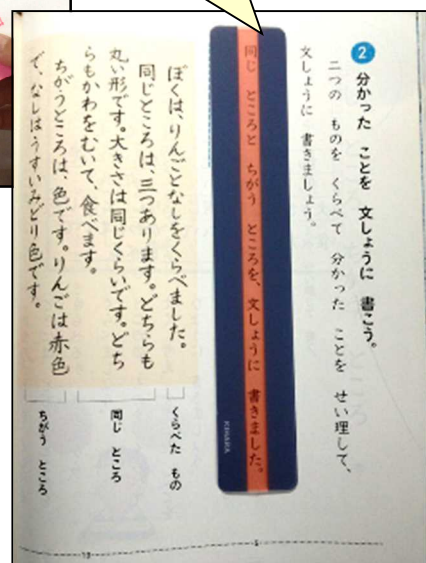 2 分かった ことを 文しょうに 書こう。
二つの ものを くらべて 分かった ことを せい理して、
文しょうに 書きましょう。
同じ ところと ちがう ところを、文しょうに 書きました。
KIHARA
ぼくは、りんごとなしをくらべました。
同じところは、三つあります。どちらも
丸い形です。大きさは同じくらいです。どち
らもかわをむいて、食べます。
ちがうところは、色です。りんごは赤色
で、なしはうすいみどり色です。
くらべた もの
同じ ところ
ちがう ところ